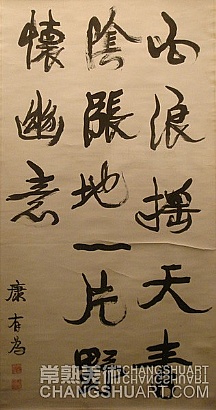 白浪搖天青
陰漲地一片野
懷幽意
康有為
常熟美術
CHANGSHUART.COM